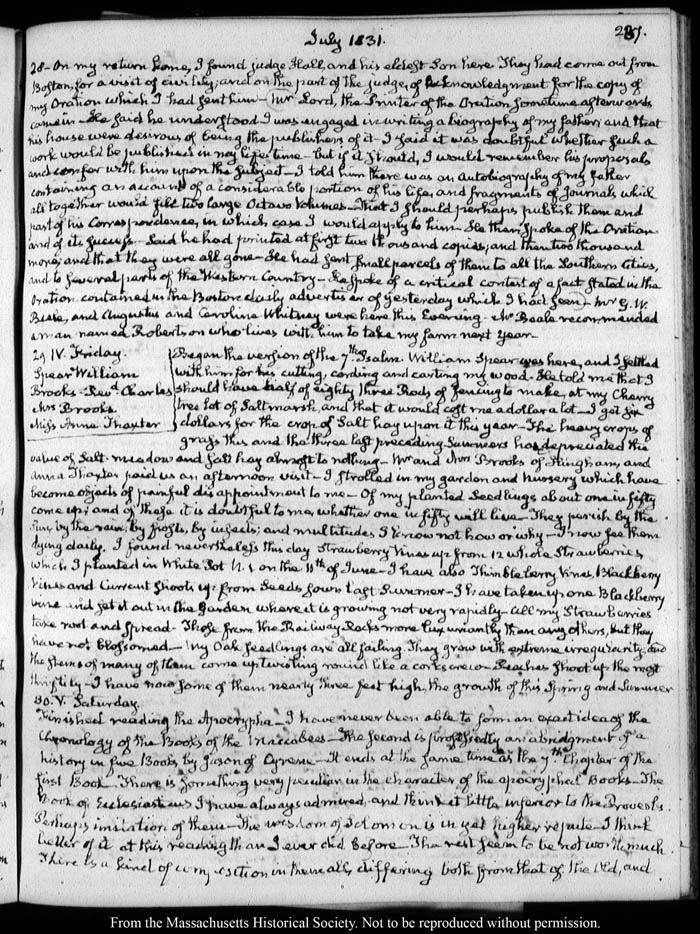 July 1831.
287.
28- On my return home, I found judge Hall, and his eldest Son here. They had come out from
Boston, for a visit of civility; and on the part of the judge, of acknowledgment for the copy of
my Oration which I had sent him- Mr Lord, the Printer of the Oration sometime afterwards
came in- He said he understood I was engaged in writing a biography of my father, and that
his house were desirous of being the publishers of it- I said it was doubtful whether such a
work would be published in my life time- but if it should, I would remember his proposals
and confer with him upon the subject- I told him there was an autobiography of my father
containing an account of a considerable portion of his life, and fragments of Journals which
all together would fill two large Octavo Volumes- That I should perhaps publish them and
part of his Correspondence, in which case I would apply to him- He then spoke of the Oration
and of its success- Said he had printed at first two thousand copies; and then two thousand
more; and that they were all gone- He had sent small parcels of them to all the Southern Cities,
and to several parts of the Western Country- He spoke of a critical contest of a fact stated in the
Oration contained in the Boston daily advertiser of yesterday which I had seen- Mr G. W.
Beale, and Augustus and Caroline Whitney were here this Evening- Mr Beale recommended
a man named Robertson who lives with him to take my farm next year-
29 IV. Friday.
Spear William
Brooks- Revd Charles
Mrs Brooks
Miss Anna Thaxter
Began the version of the 7th Psalm. William Spear was here, and I settled
with him for his cutting, cording and carting my wood- He told me that I
should have half of eighty three Rods of fencing to make, at my Cherry
tree lot of Salt marsh, and that it would cost me a dollar a lot- I get six
dollars for the crop of Salt hay upon it this year- The heavy crops of
grass this and the three last preceding Summers has depreciated the
value of Salt meadow and salt hay almost to nothing- Mr and Mrs Brooks of Hingham, and
Anna Thaxter paid us an afternoon visit- I strolled in my garden and Nursery which have
become objects of painful disappointment to me- Of my planted Seedlings about one in fifty
come up; and of these it is doubtful to me, whether one in fifty will live- They perish by the
Sun, by the rain, by frosts, by insects; and multitudes I know not how or why- I now see them
dying daily. I found nevertheless this day Strawberry Vines up from 12 whole Strawberries
which I planted in White Pot N. 1 on the 11th of June- I have also Thimble berry Vines, Blackberry
Vines and Currant shoots up from Seeds sown last Summer- I have taken up one Blackberry
vine and set it out in the Garden where it is growing not very rapidly- all my Strawberries
take root and spread- Those from the Railway Rocks more luxuriantly than any others, but they
have not blossomed- My Oak seedlings are all failing. They grow with extreme irregularity, and
the stems of many of them come up twisting round like a corkscrew- Peaches shoot up the most
thriftily- I have now some of them nearly three feet high, the growth of this Spring and Summer
30. V. Saturday.
Finished reading the Apocrypha- I have never been able to form an exact idea of the
Chronology of the Books of the Maccabees- The second is professedly an abridgment of a
history in five Books by Jason of Cyrene- It ends at the same time as the 7th Chapter of the
first Book. There is something very peculiar in the character of the apocryphal Books- The
Book of Ecclesiasticus I have always admired, and think it little inferior to the Proverbs.
Perhaps imitation of them- The wisdom of Solomon is in yet higher repute- I think
better of it at this reading than I ever did before- The rest seem to be not worth much
There is a kind of composition in them all, differing both from that of the Old, and
From the Massachusetts Historical Society. Not to be reproduced without permission.